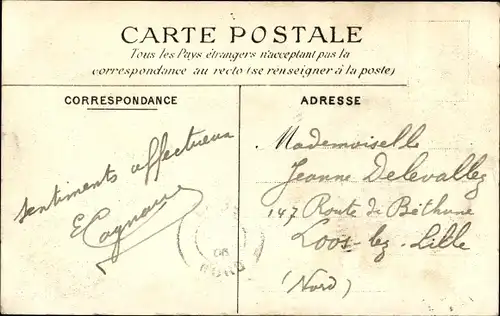 CARTE POSTALE
Tous les Pays étrangers n'acceptant pas la
correspondance au recto (se renseigner à la poste)
CORRESPONDANCE
ADRESSE
Sentiments affectueux
Mademoiselle
Jeanne Delevallez
147 Route de Béthune
Loos-lez-Lille
(Nord)